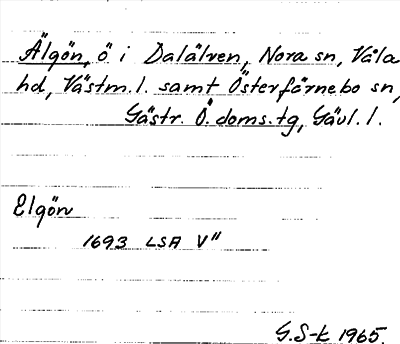 Älgön, ö i Dalälven, Nora sn, Våla
hd, Västm. l. samt Österfärnebo sn,
Gästr. Ö. doms. tg, Gävl. l.
Elgön
1693 LSA V"
G. S-k 1965.